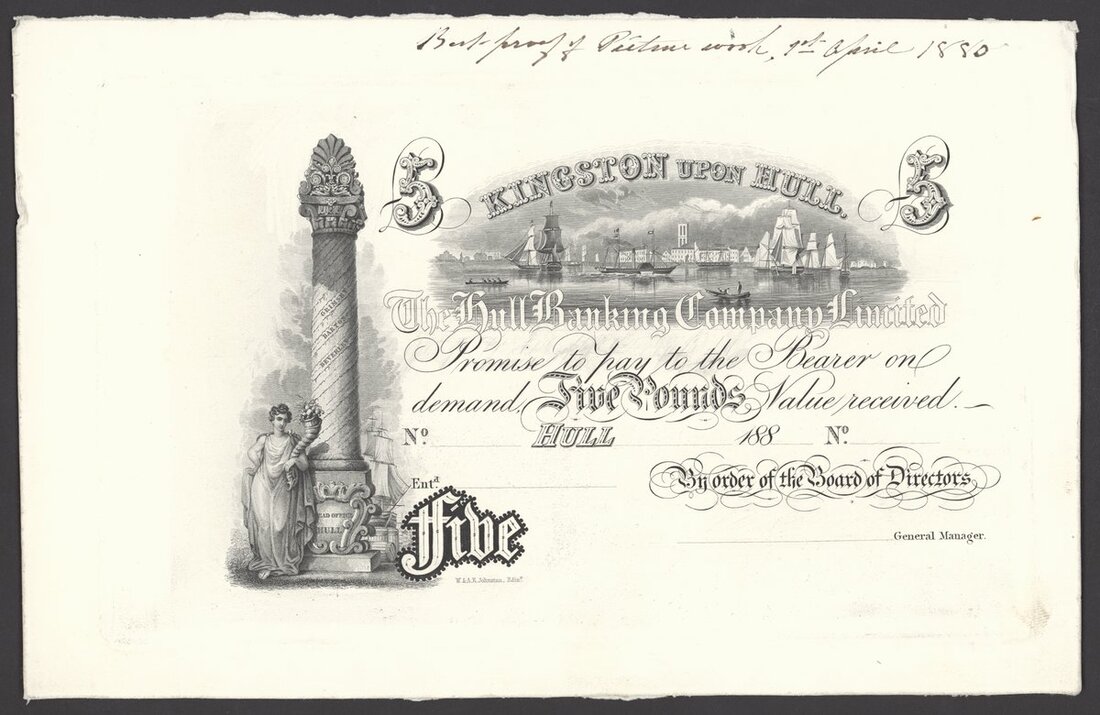 Best proof of Picture work, 1st April 1880
£5
KINGSTON UPON HULL.
£5
The Hull Banking Company Limited
Promise to pay to the Bearer on
demand, Five Pounds Value received.
No. HULL 188 No.
Entd.
By order of the Board of Directors,
General Manager.
Five
W. & A.K. Johnston, Edinr.
GRIMSBY
BARTON
BEVERLEY
HEAD OFFICE
HULL